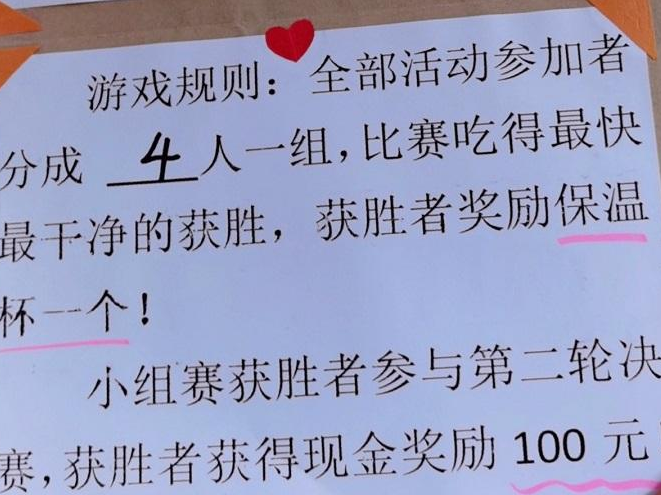 游戏规则：全部活动参加者
分成 4 人一组，比赛吃得最快
最干净的获胜，获胜者奖励保温
杯一个！
小组赛获胜者参与第二轮决
赛，获胜者获得现金奖励 100 元